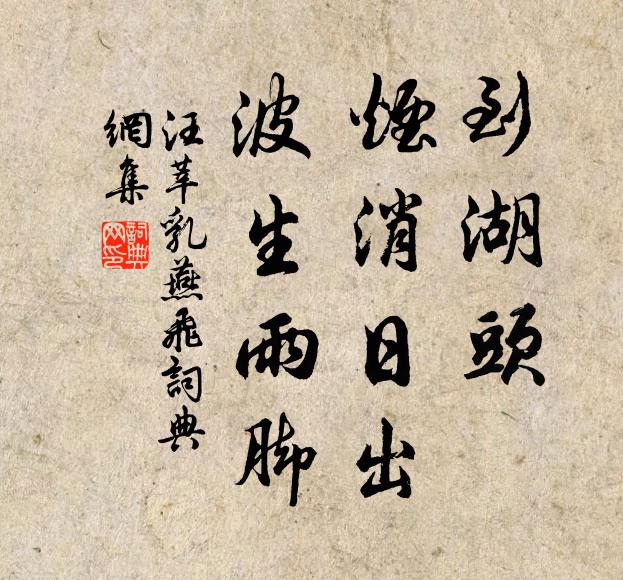 到湖頭
煙消日出
波生雨脚
汪莘乳燕飛詞典
網集
詞典
网印